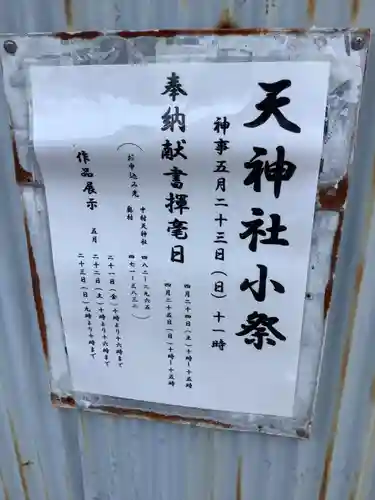 天神社小祭
神事五月二十三日(日)十一時
奉納献書揮毫日
四月二十四日(土)十時〜十五時
四月二十五日(日)十時〜十五時
(お申込み先 中村天神社 四八二ー二九六五
四七一ー三八三二)
作品展示
五月 二十一日(金)十時より十六時まで
二十二日(土)十時より十六時まで
二十三日(日)九時より十時まで